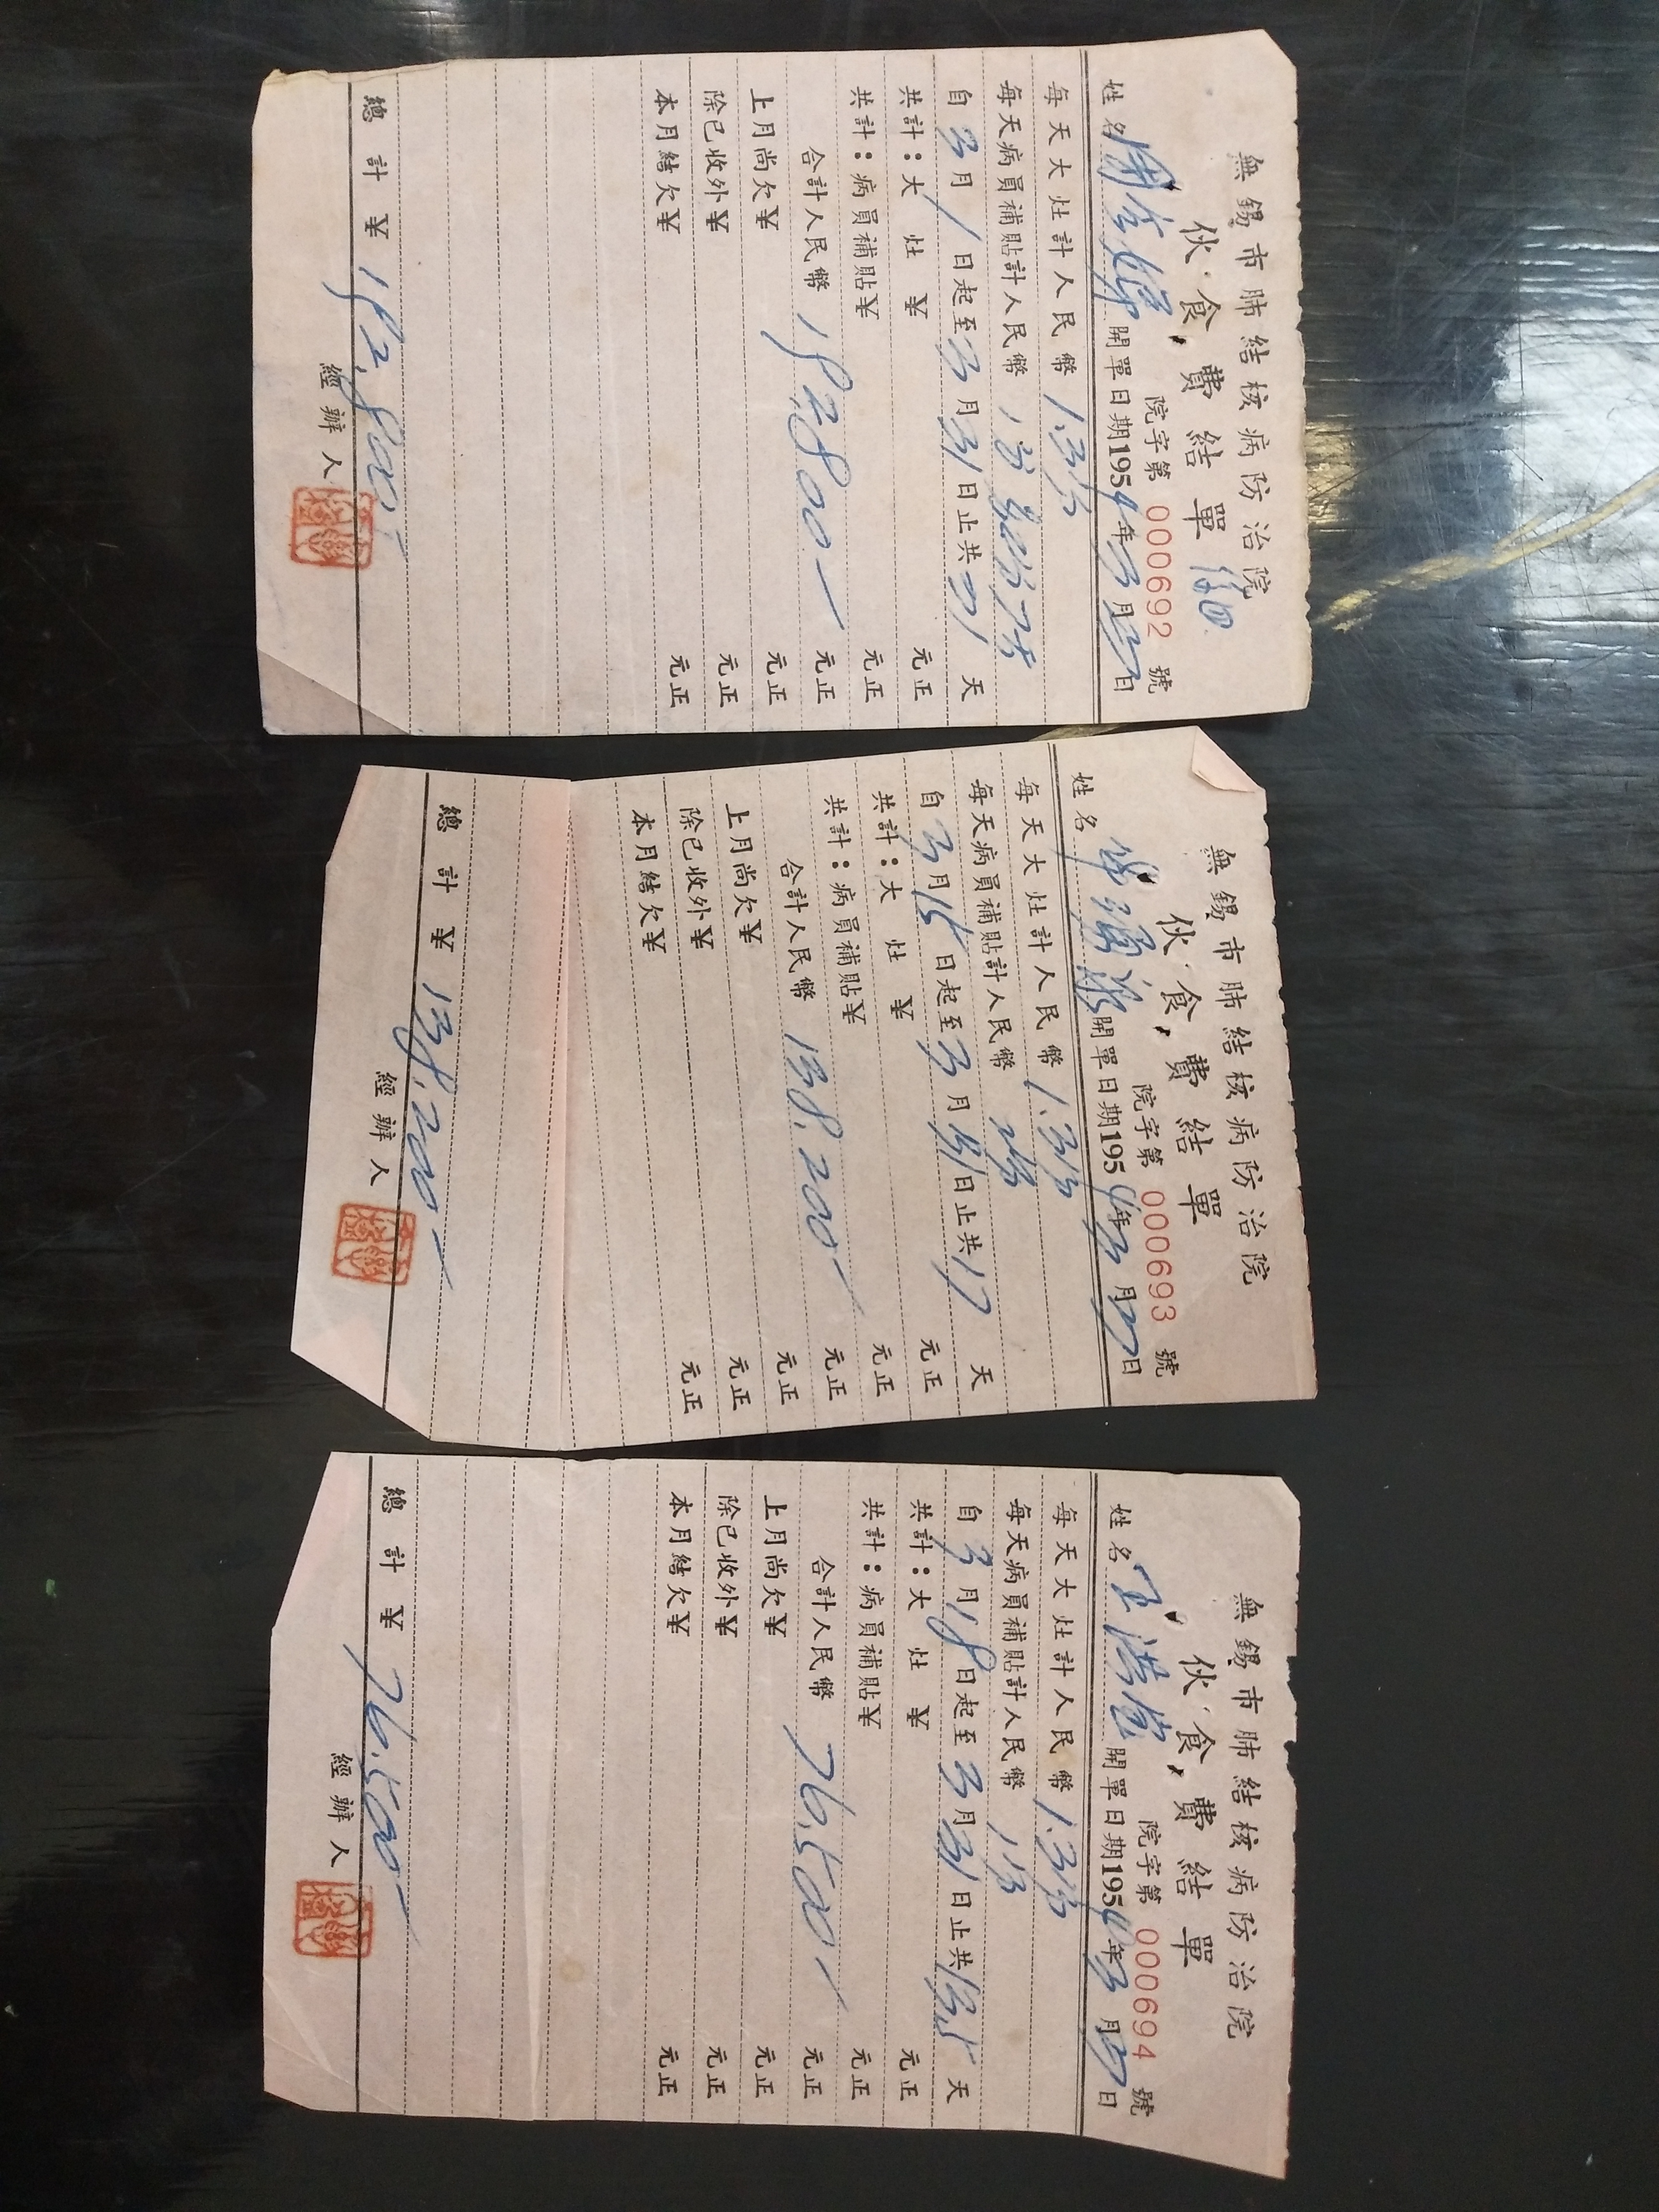 無錫市肺結核病防治院
伙食費結單
院字第 000692 號
姓名 開單日期1954年3月27日
每天大灶計人民幣 1.3
每天病員補貼計人民幣
自3月1日起至3月31日止共31天
共計:大灶¥ 元正
共計:病員補貼¥ 元正
合計人民幣 192,800 元正
上月尚欠¥ 元正
除已收外¥ 元正
本月結欠¥ 元正
總計¥ 192,800
經辦人
無錫市肺結核病防治院
伙食費結單
院字第 000693 號
姓名 開單日期1954年3月27日
每天大灶計人民幣 1.3
每天病員補貼計人民幣
自3月15日起至3月31日止共17天
共計:大灶¥ 元正
共計:病員補貼¥ 元正
合計人民幣 138,200 元正
上月尚欠¥ 元正
除已收外¥ 元正
本月結欠¥ 元正
總計¥ 138,200
經辦人
無錫市肺結核病防治院
伙食費結單
院字第 000694 號
姓名 王 開單日期1954年3月27日
每天大灶計人民幣 1.3
每天病員補貼計人民幣
自3月18日起至3月31日止共13.5天
共計:大灶¥ 元正
共計:病員補貼¥ 元正
合計人民幣 76,500 元正
上月尚欠¥ 元正
除已收外¥ 元正
本月結欠¥ 元正
總計¥ 76,500
經辦人